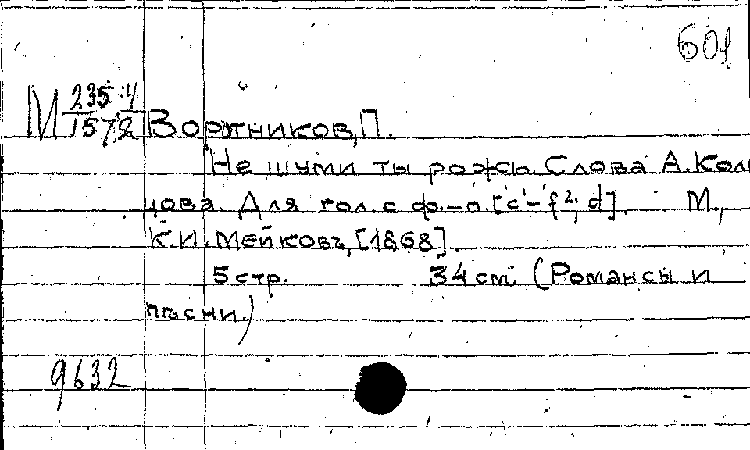 601
М 235 : 4 / 1572
Воржников, П.
Не шуми ты рожь. Слова А. Коль
цова. Для гол. с ф.-п. [c'-f², d]. М.,
К.И. Мейковъ, [1868].
5 стр. 34 cm. (Романсы и
пѣсни.)
9632